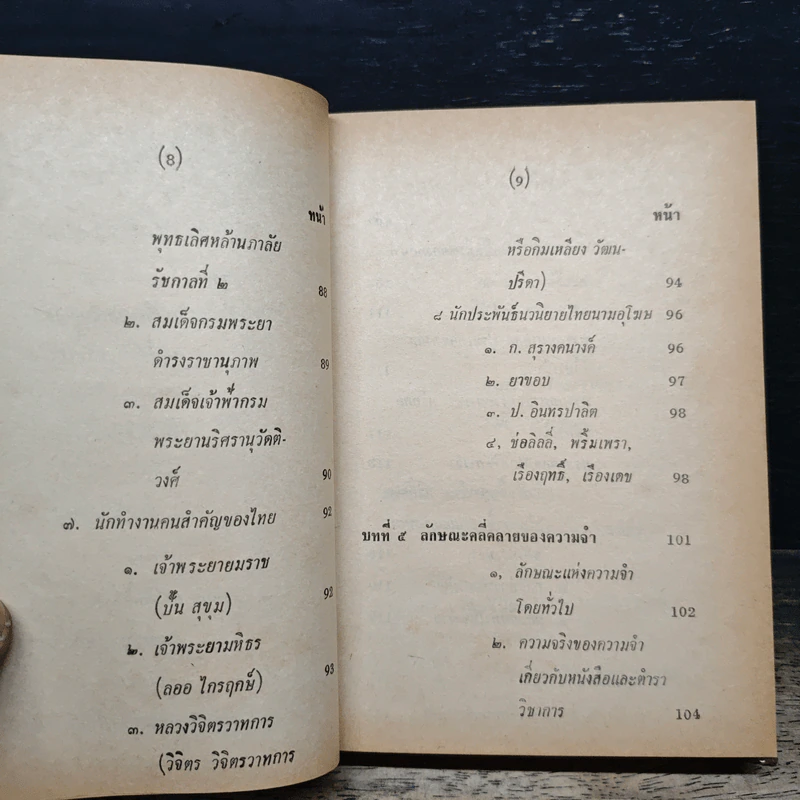 (8)
หน้า
พุทธเลิศหล้านภาลัย
รัชกาลที่ ๒ 88
๒. สมเด็จกรมพระยา
ดำรงราชานุภาพ 89
๓. สมเด็จเจ้าฟ้ากรม
พระยานริศรานุวัดติ-
วงศ์ 90
๗. นักทำงานคนสำคัญของไทย 92
๑. เจ้าพระยายมราช
(ปั้น สุขุม) 92
๒. เจ้าพระยามหิธร
(ลออ ไกรฤกษ์) 93
๓. หลวงวิจิตรวาทการ
(วิจิตร วิจิตรวาทการ
(9)
หน้า
หรือกิมเหลียง วัฒน-
ปรีดา) 94
๘ นักประพันธ์นวนิยายไทยนามอุโฆษ 96
๑. ก. สุรางคนางค์ 96
๒. ยาขอบ 97
๓. ป. อินทรปาลิต 98
๔, ช่อลิลลี่, พริ้มเพรา,
เรืองฤทธิ์, เรืองเดช 98
บทที่ ๕ ลักษณะคลี่คลายของความจำ 101
๑, ลักษณะแห่งความจำ
โดยทั่วไป 102
๒. ความจริงของความจำ
เกี่ยวกับหนังสือและตำรา
วิชาการ 104